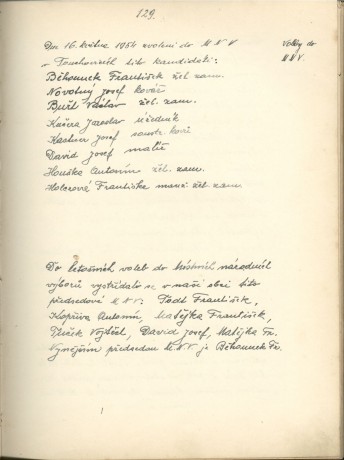 129.
Dne 16. května 1954 zvoleni do M N V
Volby do
M N V.
v Touchovicích tito kandidáti:
Běhounek František žel. zam.
Novotný Josef kovář
Bureš Václav žel. zam.
Kučera Jaroslav úředník
Kastner Josef soustr. kovů
David Josef malíř
Houska Antonín žel. zam.
Holcrová Františka manž. žel. zam.
Do letošních voleb do místních národních
výborů vystřídalo se v naší obci tito
předsedové M N V: Födt František,
Kopřiva Antonín, Matějka František,
Vojtěch, David Josef, Matějka Fr.
Nynějším předsedou M.N.V. je Běhounek Fr.